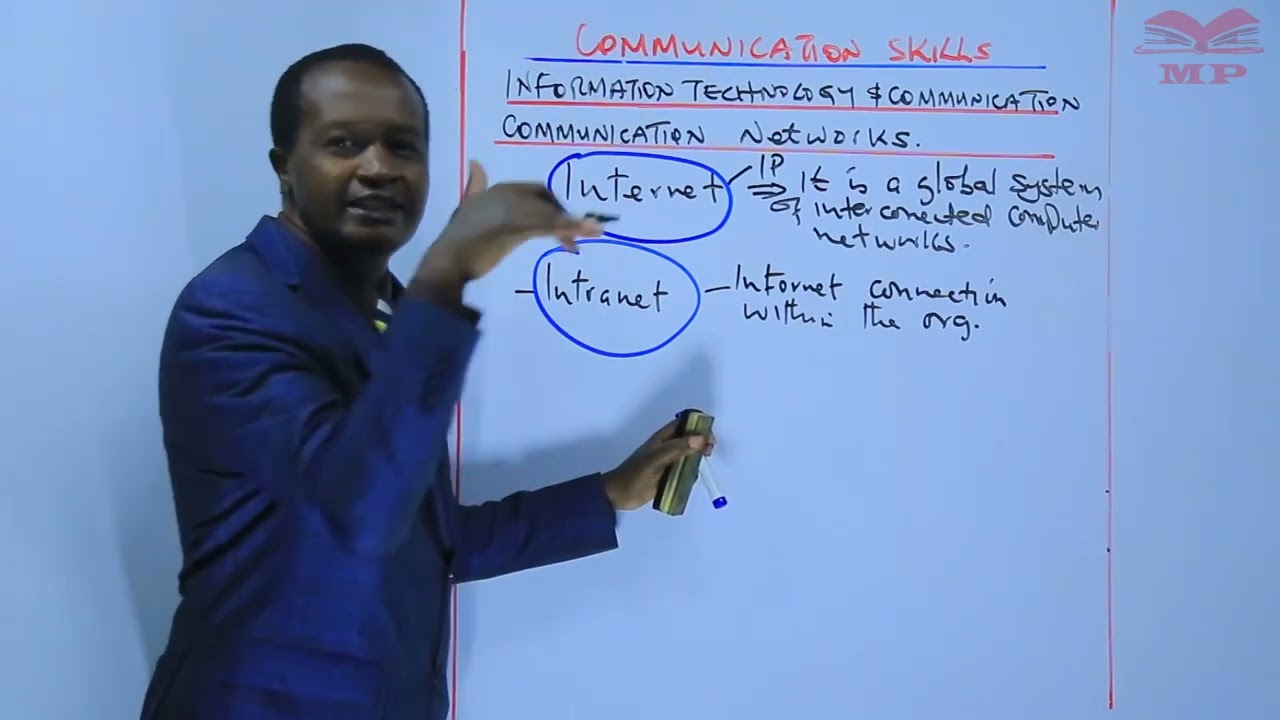 COMMUNICATION SKILLS
INFORMATION TECHNOLOGY & COMMUNICATION
COMMUNICATION NETWORKS.
Internet IP ⇒ It is a global system
of interconected computer
networks.
- Intranet - Infornet connectin
within the org.
MP